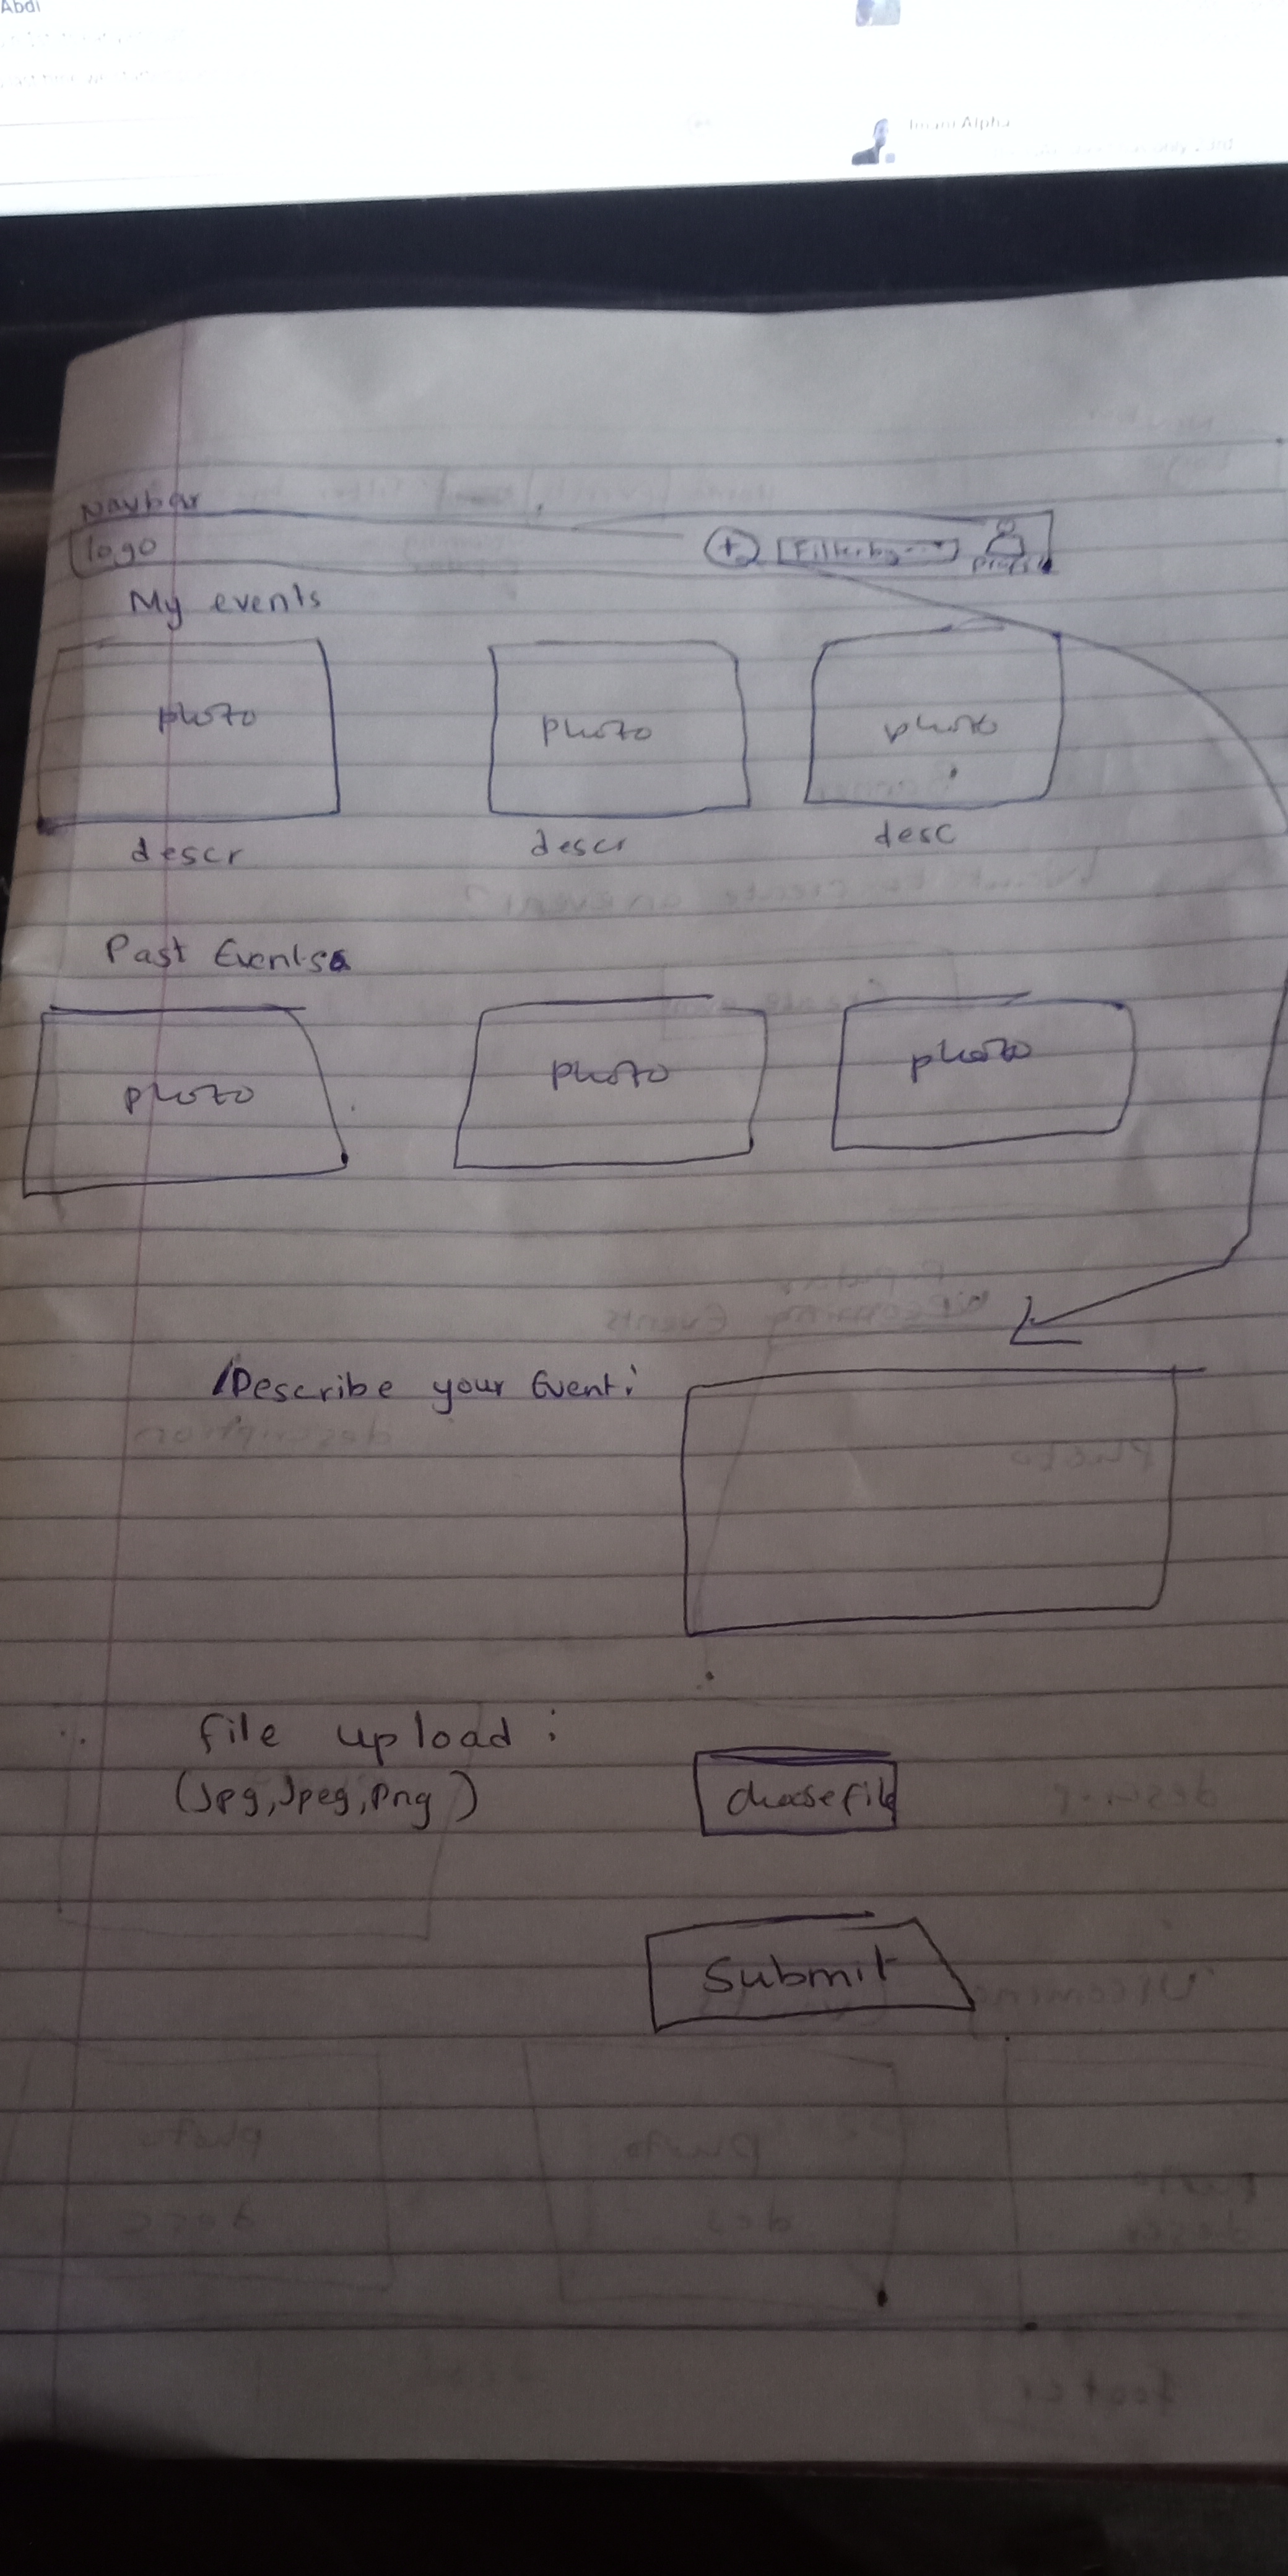 Abdi
Imani Alpha
Navbar
logo + Filter by --- profile
My events
photo photo photo
descr descr desc
Past Events
photo photo photo
Describe your Event:
file upload :
(Jpg, Jpeg, Png) choose file
Submit